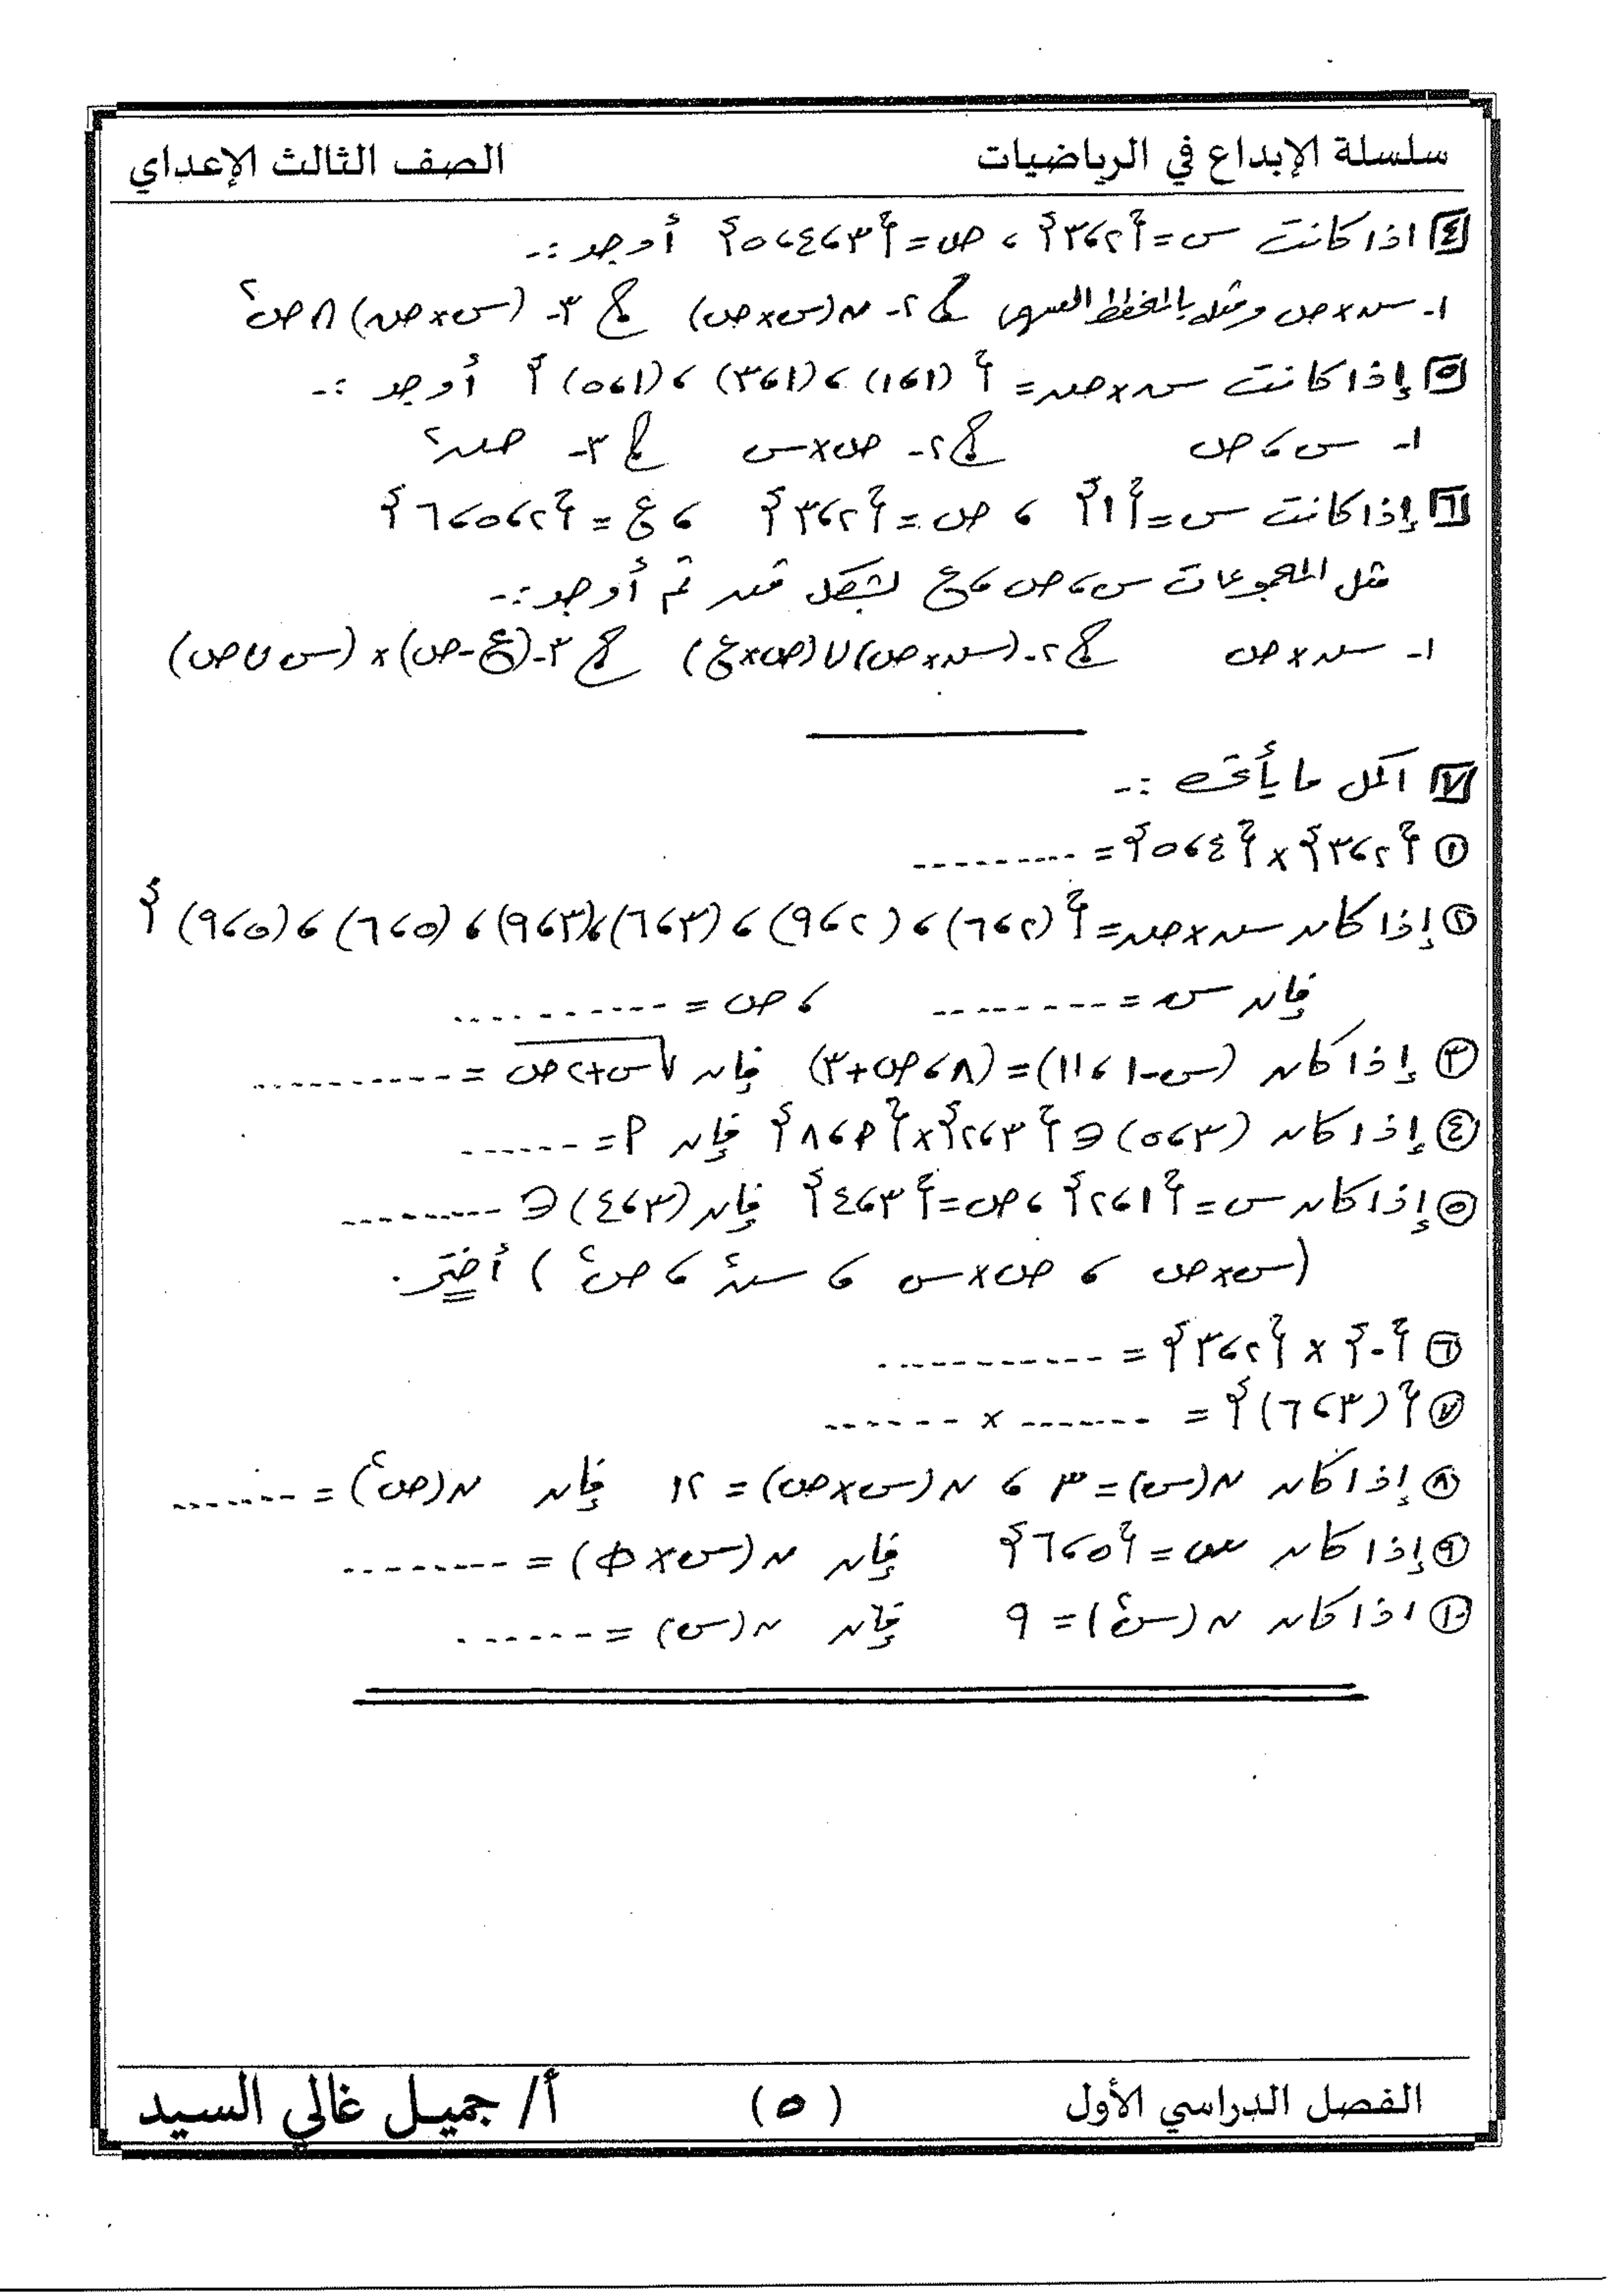 سلسلة الإبداع في الرياضيات الصف الثالث الإعداي
[٤] اذا كانت س = {٢، ٣} ، ص = {٣، ٤، ٥} أوجد :-
١- س × ص ومثله بالمخطط السهمى ٢- ن(س × ص) ٣- (س × ص) ∩ ص٢
[٥] إذا كانت س × ص = { (١، ١) ، (١، ٣) ، (١، ٥) } أوجد :-
١- س ، ص ٢- ص × س ٣- ص٢
[٦] إذا كانت س = {١} ، ص = {٢، ٣} ، ع = {٢، ٥، ٦}
مثل المجموعات س، ص، ع بشكل فن ثم أوجد :-
١- س × ص ٢- (س × ص) ∪ (ص × ع) ٣- (ع - ص) × (س ∪ ص)
[٧] اكمل ما يأتى :-
(١) {٢، ٣} × {٤، ٥} = ---------
(٢) إذا كان س × ص = { (٢، ٦) ، (٢، ٩) ، (٣، ٦) ، (٣، ٩) ، (٥، ٦) ، (٥، ٩) }
فإن س = --------- ، ص = ----------
(٣) إذا كان (س - ١، ١١) = (٨، ص + ٣) فإن √(س + ٢ص) = ----------
(٤) إذا كان (٣، ٥) ∈ {٣، ٢} × {م، ٨} فإن م = ------
(٥) إذا كان س = {١، ٢} ، ص = {٣، ٤} فإن (٣، ٤) ∈ ---------
(س × ص ، ص × س ، س٢ ، ص٢) أختر.
(٦) {٠} × {٢، ٣} = -----------
(٧) {(٣، ٦)} = ------- × ------
(٨) إذا كان ن(س) = ٣ ، ن(س × ص) = ١٢ فإن ن(ص٢) = -------
(٩) إذا كان س = {٥، ٦} فإن ن(س × Φ) = --------
(١٠) اذا كان ن(س٢) = ٩ فإن ن(س) = ------
الفصل الدراسي الأول (٥) أ/ جميل غالي السيد